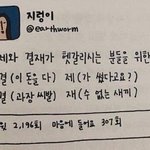 지렁이
@earthworm
제와 결재가 헷갈리시는 분들을 위한
결 (이 돈을 다) 제 (가 썼다고요?)
결 (과장 씨발) 재 (수 없는 새끼)
2,196회 마음에 들어요 307회